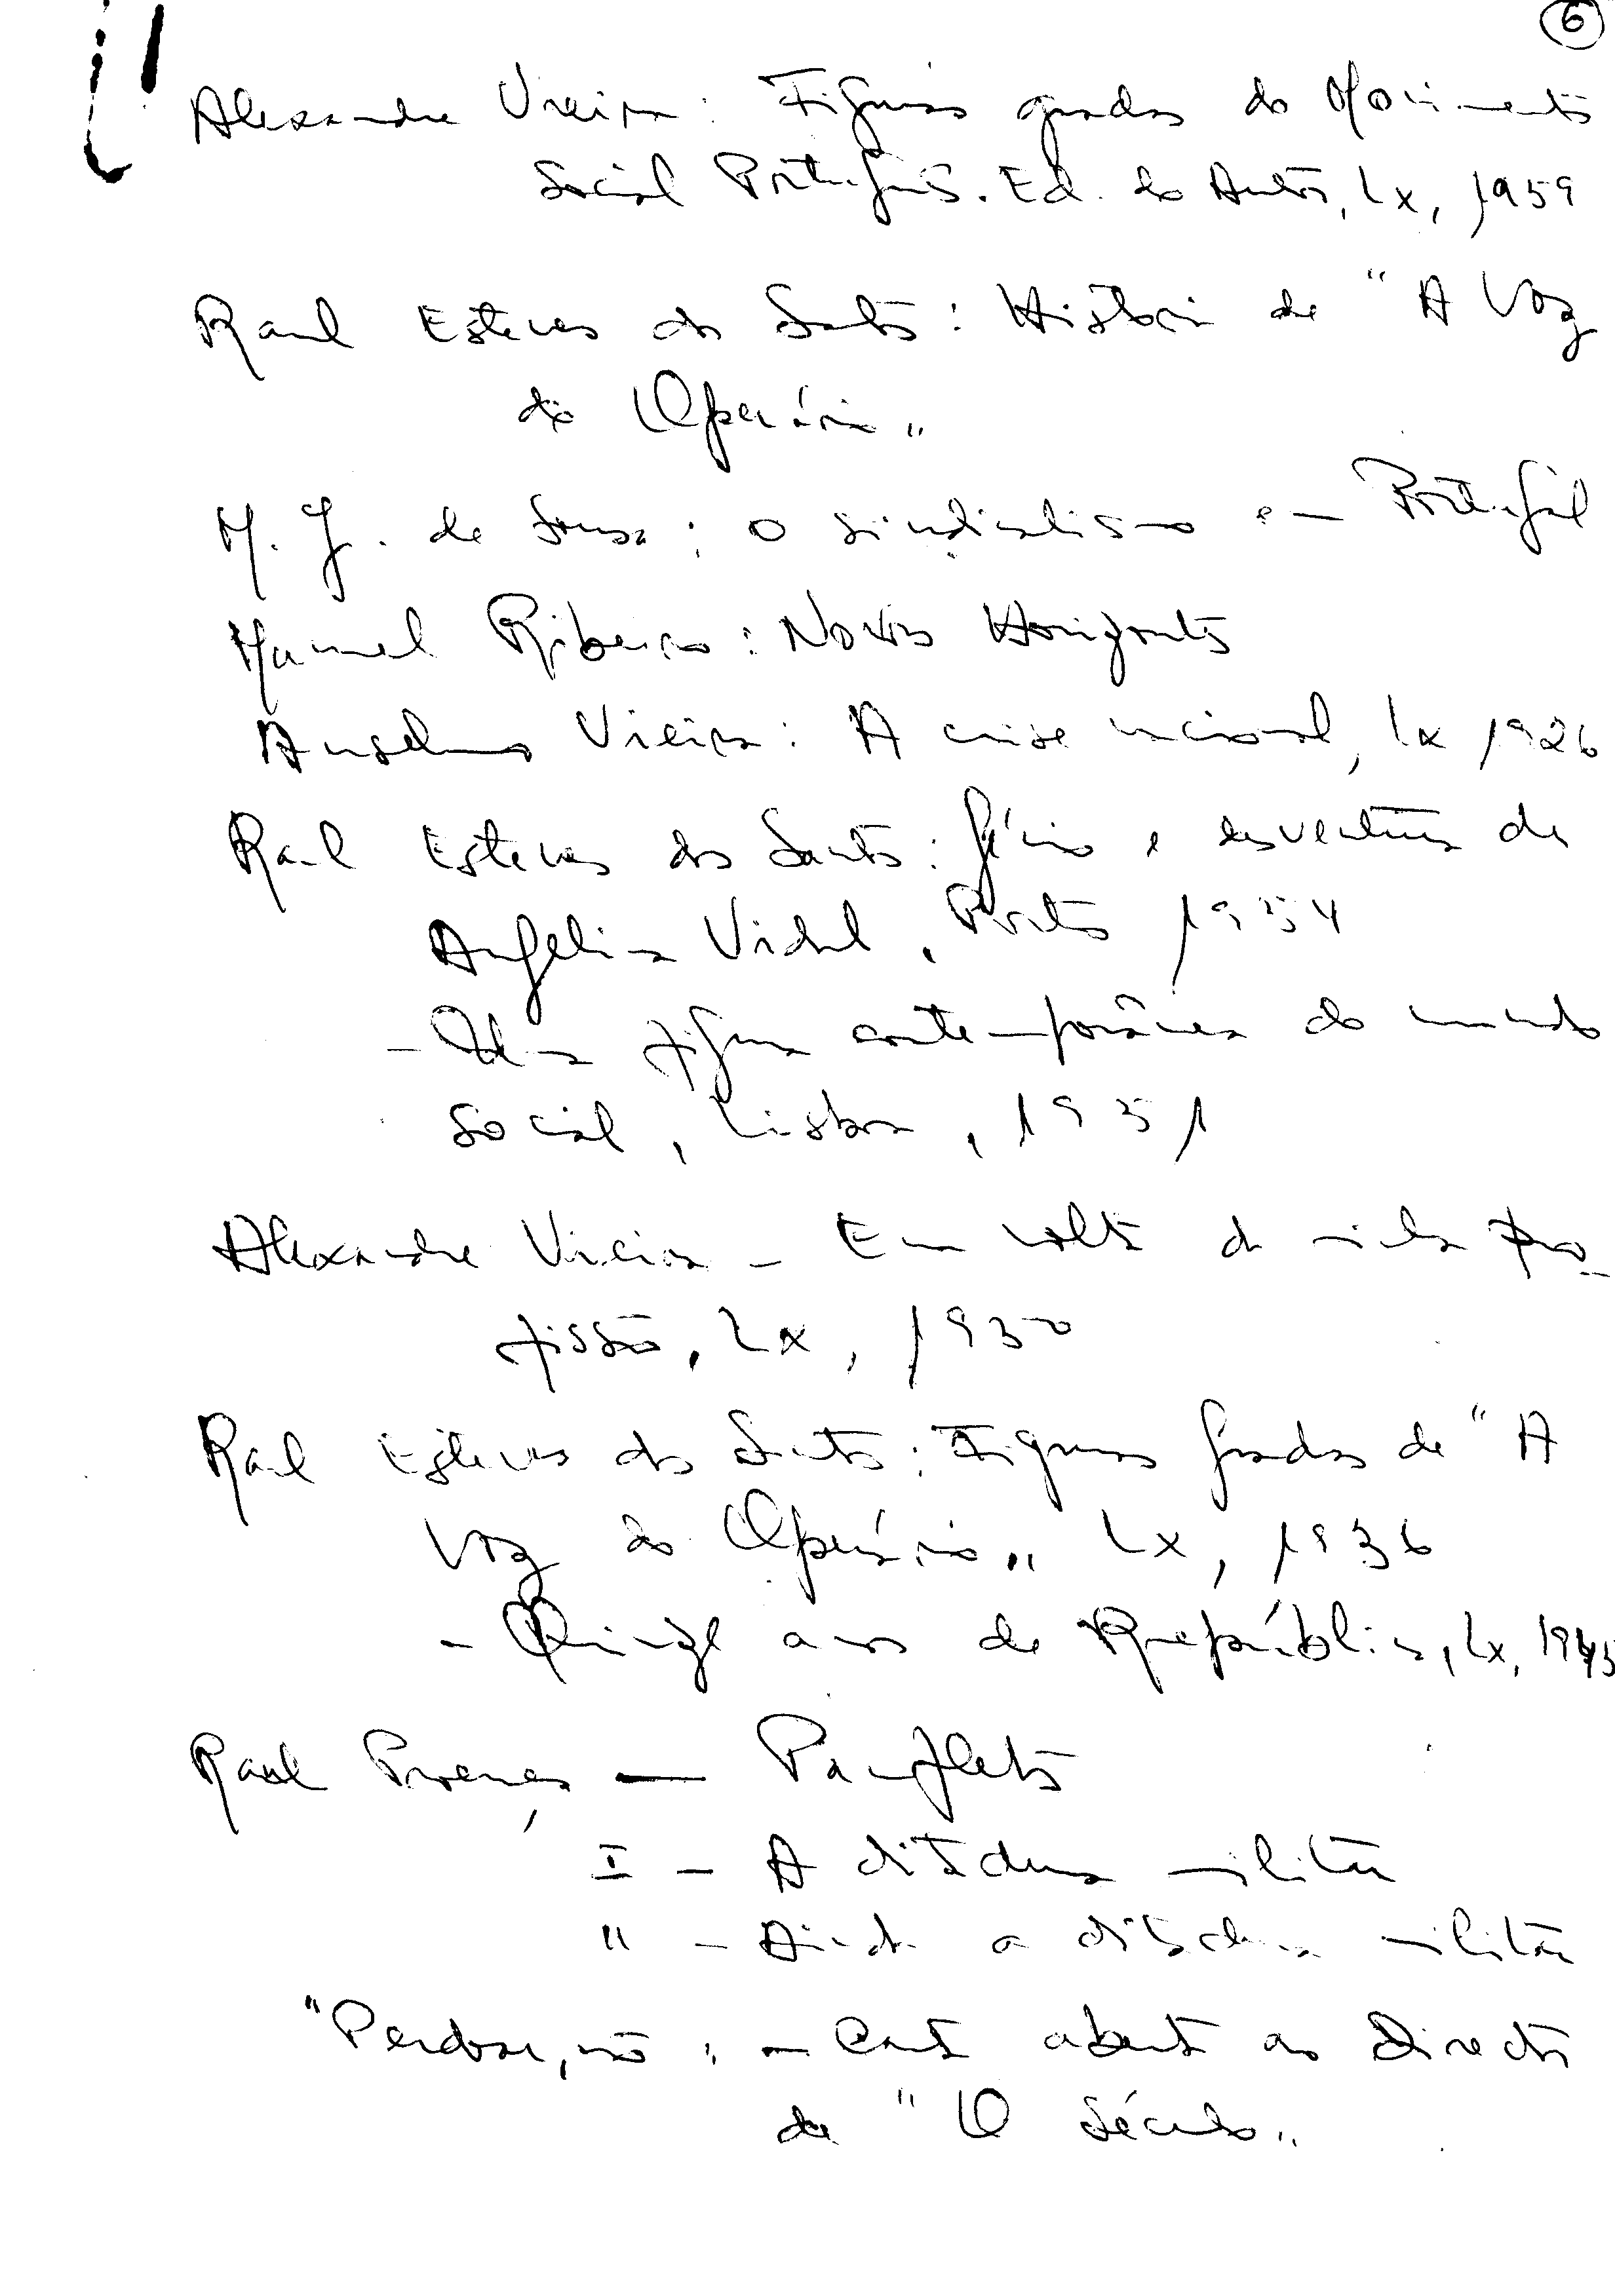 6
Alexandre Vieira: Figuras gradas do Movimento
Social Português. Ed. do Autor, Lx, 1959
Raul Esteves dos Santos: História de "A Voz
do Operário"
M. J. de Sousa: O sindicalismo em Portugal
Manuel Ribeiro: Novos Horizontes
Anselmo Vieira: A crise nacional, Lx 1926
Raul Esteves dos Santos: Génio e desventura de
Angelina Vidal, Porto 1954
- Uma figura contemporânea do mundo
Social, Lisboa, 1951
Alexandre Vieira - Em volta da minha pro-
fissão, Lx, 1950
Raul Esteves dos Santos: Figuras gradas de "A
Voz do Operário" Lx, 1936
- Quinze anos de República, Lx, 1945
Raul Proença — Panfletos
I - A ditadura militar
II - Ainda a ditadura militar
"Perdoar, não" - Carta aberta ao Director
de "O Século"